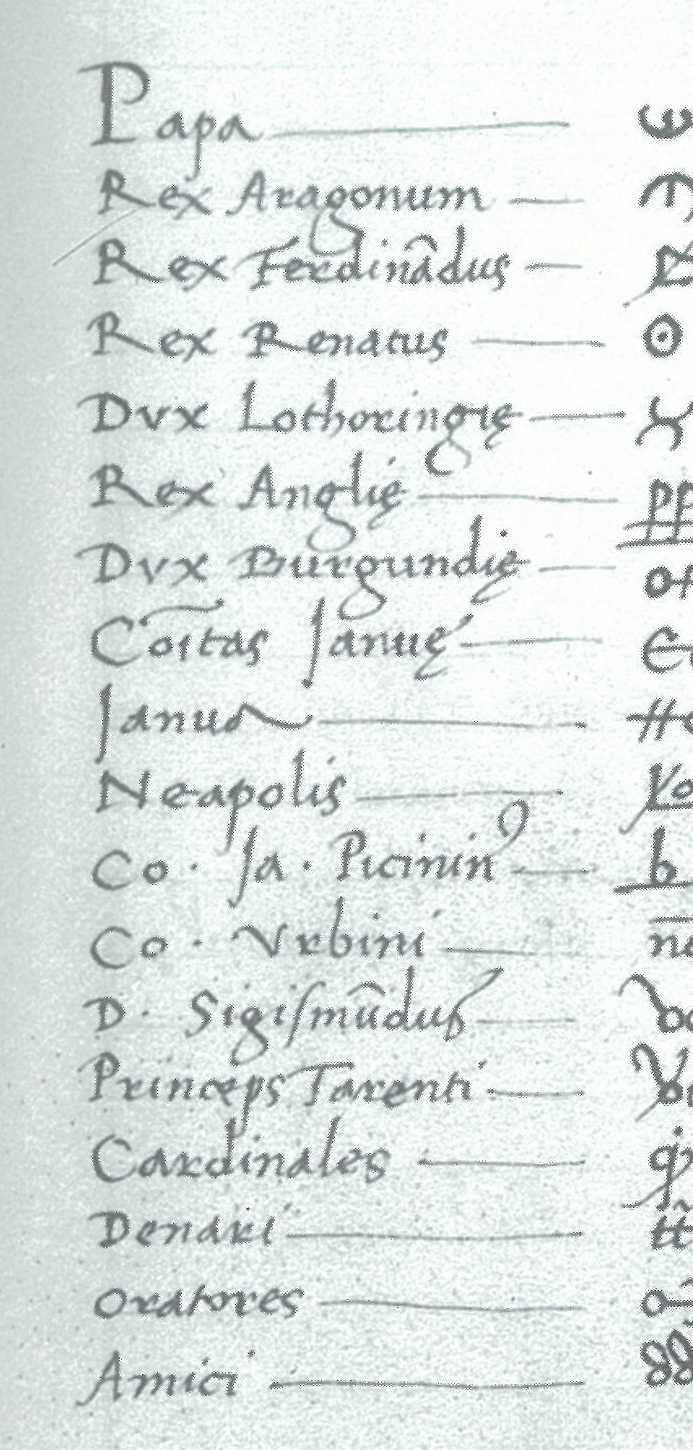 Papa
Rex Aragonum
Rex Ferdinādus
Rex Renatus
Dvx Lothoringię
Rex Anglię
Dvx Burgundię
Cōitas Januę
Janua
Neapolis
Co. Ja. Picininꝰ
Co. Vrbini
D. Sigiſmūdus
Princeps Tarenti
Cardinales
Denari
Oratores
Amici